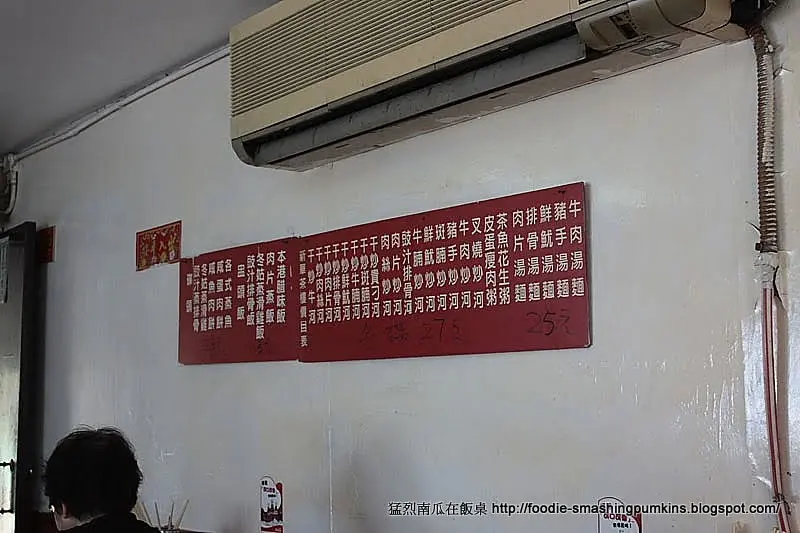 牛肉湯麵
豬手湯麵
鮮魷湯麵
排骨湯麵
肉片湯麵
25元
茶魚花生粥
皮蛋瘦肉粥
叉燒炒河
牛肉炒河
豬手炒河
斑腩炒河
鮮魷炒河
牛腩炒河
豉汁排骨河
肉片炒河
肉絲炒河
27元
干炒
河
干炒斑腩河
干炒牛腩河
干炒鮮魷河
干炒排骨河
干炒肉片河
干炒肉絲河
干炒牛河
新華茶樓價目表
本港臘味飯
肉片蒸飯
冬姑蒸滑雞飯
豉汁排骨飯
盅頭飯
各式蒸魚
咸蛋肉餅
咸魚肉餅
冬姑蒸滑雞
豉汁蒸排骨
猛烈南瓜在飯桌 http://foodie-smashingpumkins.blogspot.com/